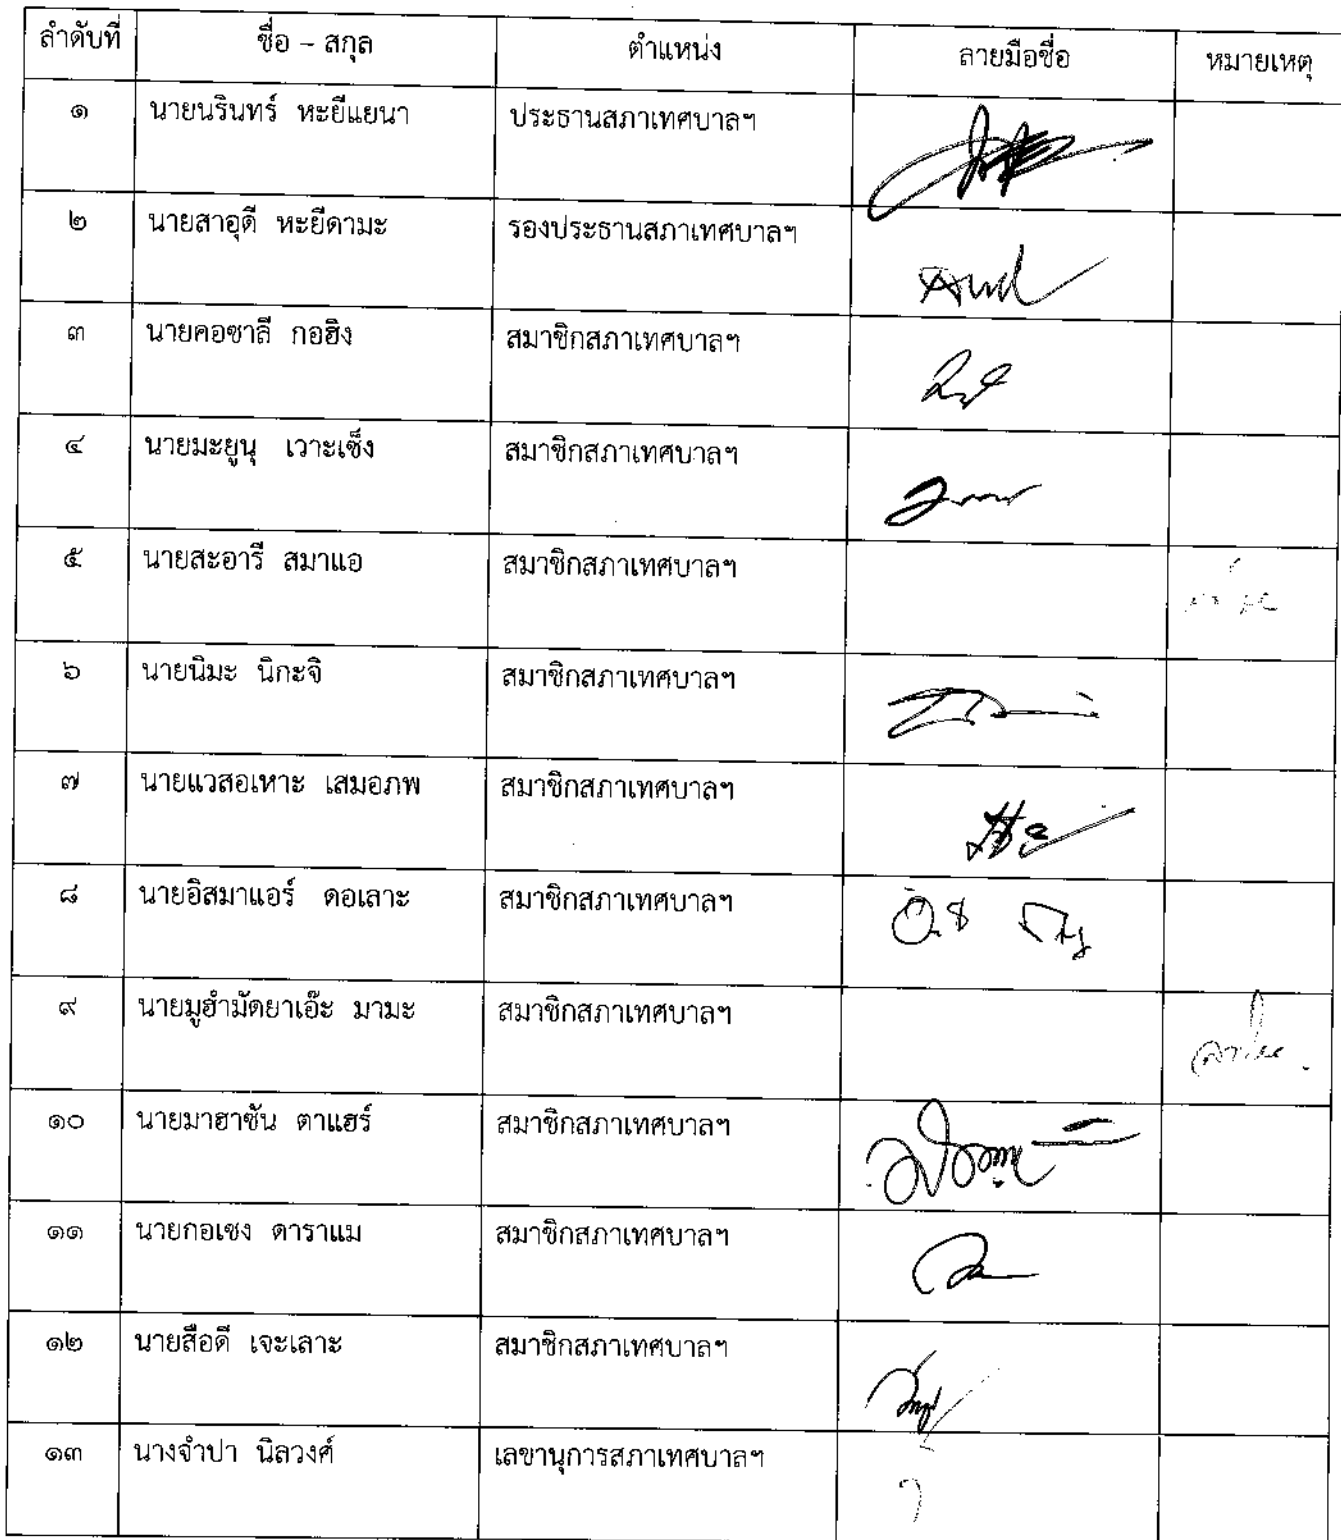 ลำดับที่ ชื่อ – สกุล ตำแหน่ง ลายมือชื่อ หมายเหตุ
๑ นายนรินทร์ หะยีแยนา ประธานสภาเทศบาลฯ
๒ นายสาอุดี หะยีดามะ รองประธานสภาเทศบาลฯ
๓ นายคอซาลี กอฮิง สมาชิกสภาเทศบาลฯ
๔ นายมะยูนุ เวาะเซ็ง สมาชิกสภาเทศบาลฯ
๕ นายสะอารี สมาแอ สมาชิกสภาเทศบาลฯ
๖ นายนิมะ นิกะจิ สมาชิกสภาเทศบาลฯ
๗ นายแวสอเหาะ เสมอภพ สมาชิกสภาเทศบาลฯ
๘ นายอิสมาแอร์ ดอเลาะ สมาชิกสภาเทศบาลฯ
๙ นายมูฮำมัดยาเอ๊ะ มามะ สมาชิกสภาเทศบาลฯ
๑๐ นายมาฮาซัน ตาแฮร์ สมาชิกสภาเทศบาลฯ
๑๑ นายกอเซง ดาราแม สมาชิกสภาเทศบาลฯ
๑๒ นายสือดี เจะเลาะ สมาชิกสภาเทศบาลฯ
๑๓ นางจำปา นิลวงศ์ เลขานุการสภาเทศบาลฯ